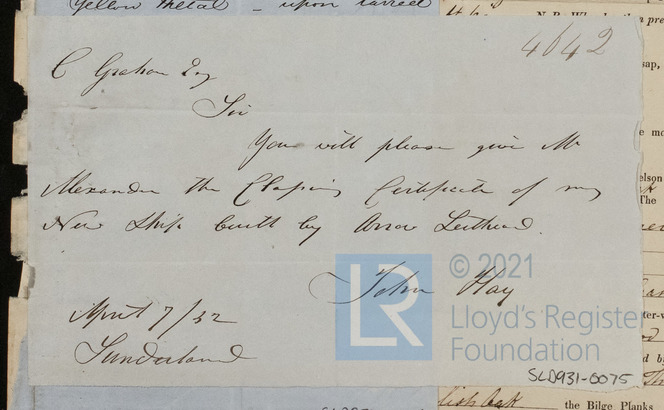 Yellow Metal - upon
4642
C Graham Esq
Sir
You will please give Mr
Alexander the Classing Certificate of my
New Ship built by Leithead
John Hay
April 7/52
Sunderland
© 2021
LR
Lloyd's Register
Foundation
SLD931-0075
sap,
The
the Bilge Planks